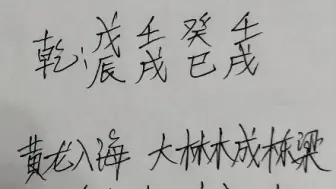 乾:戊壬癸壬
辰戌巳戌
黄龙入海 大林木成栋梁